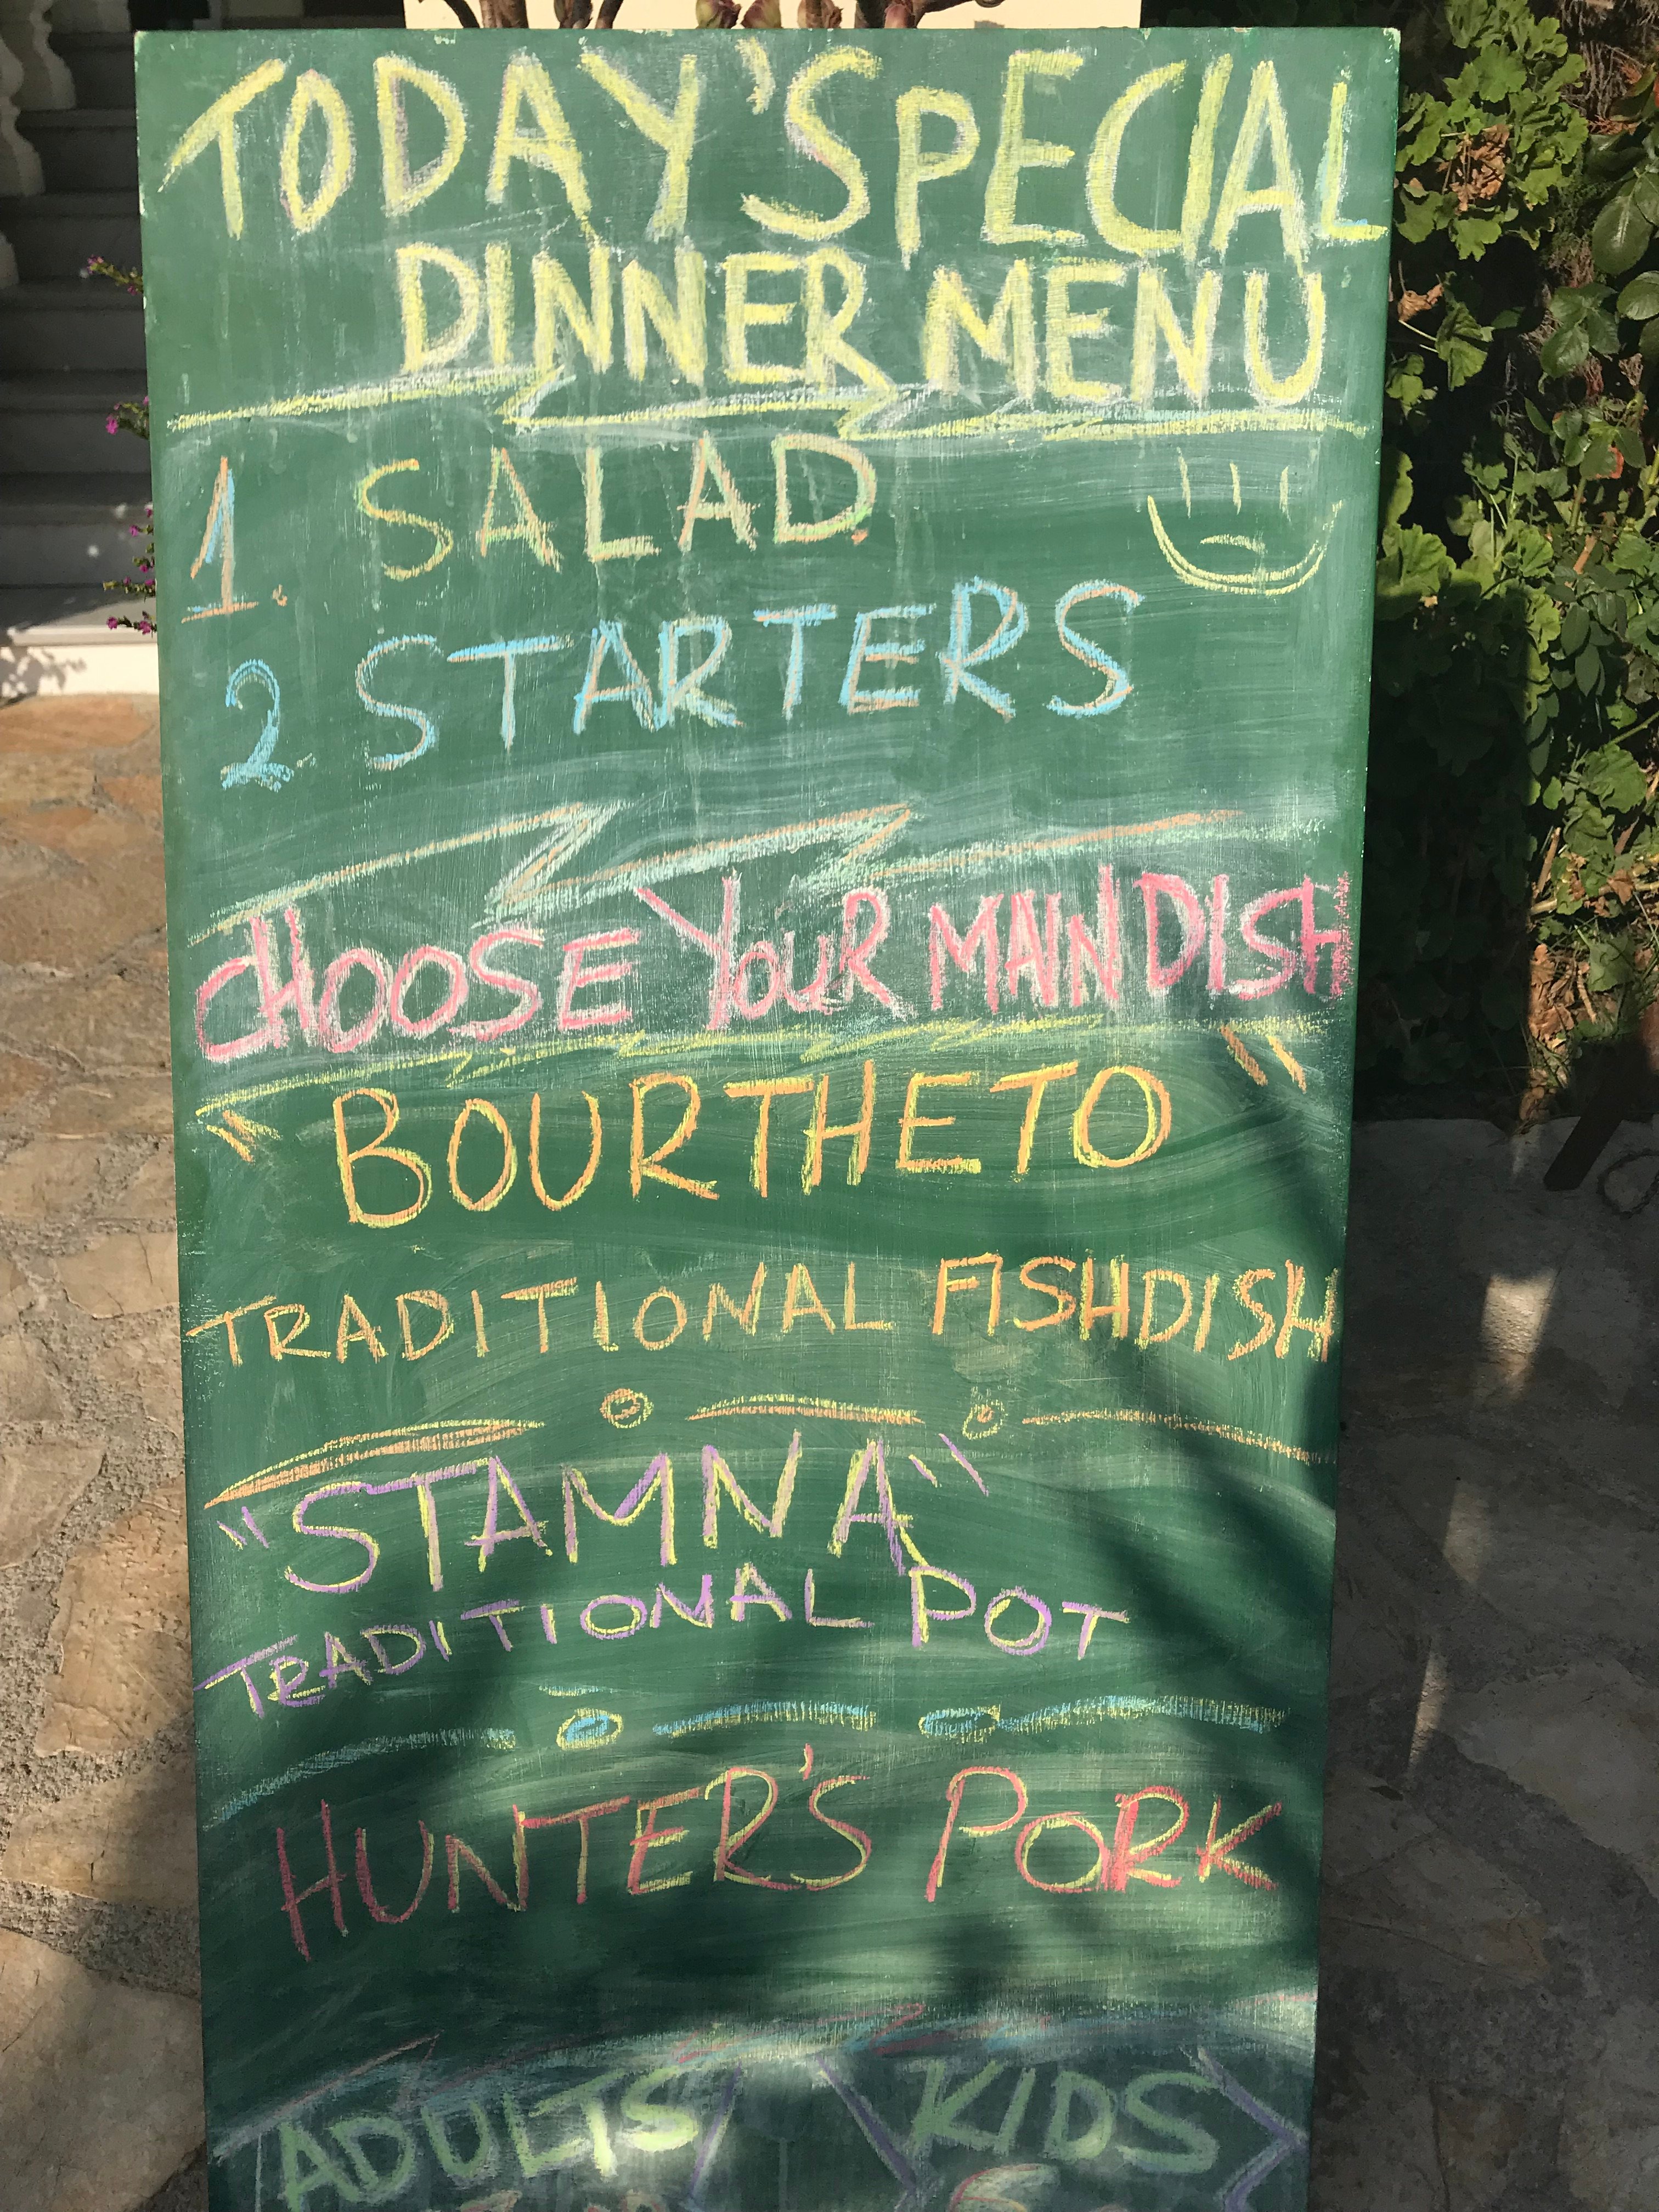 TODAY'SPECIAL
DINNER MENU
1. SALAD
2. STARTERS
CHOOSE YOUR MAIN DISH
"BOURTHETO"
TRADITIONAL FISHDISH
"STAMNA"
TRADITIONAL POT
HUNTER'S PORK
ADULTS KIDS